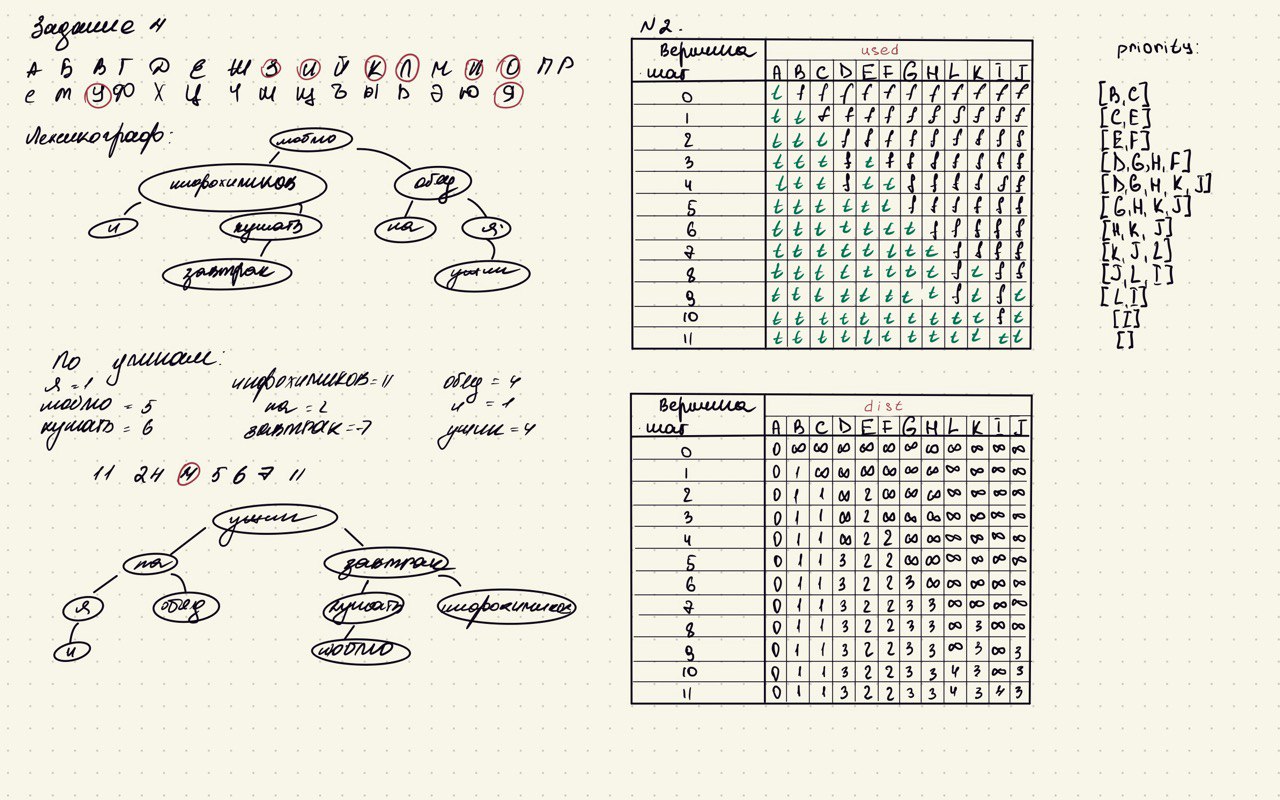 Задание 4
А Б В Г Д Е Ж З И Й К Л М Н О П Р
С Т У Ф Х Ц Ч Ш Щ Ъ Ы Ь Э Ю Я
Лексикограф:
люблю
инфохимиков обед
и кушать на я
завтрак ужин
По длинам:
я = 1 инфохимиков = 11 обед = 4
люблю = 5 на = 2 и = 1
кушать = 6 завтрак = 7 ужин = 4
11 24 4 5 6 7 11
ужин
на завтрак
я обед кушать инфохимиков
и люблю
N2.
Вершина used
шаг A B C D E F G H L K I J
0 t f f f f f f f f f f f
1 t t f f f f f f f f f f
2 t t t f f f f f f f f f
3 t t t f t f f f f f f f
4 t t t f t t f f f f f f
5 t t t t t t f f f f f f
6 t t t t t t t f f f f f
7 t t t t t t t t f f f f
8 t t t t t t t t f t f f
9 t t t t t t t t f t f t
10 t t t t t t t t t t f t
11 t t t t t t t t t t t t
priority:
[B, C]
[C, E]
[E, F]
[D, G, H, F]
[D, G, H, K, J]
[G, H, K, J]
[H, K, J]
[K, J, L]
[J, L, I]
[L, I]
[I]
[]
Вершина dist
шаг A B C D E F G H L K I J
0 0 ∞ ∞ ∞ ∞ ∞ ∞ ∞ ∞ ∞ ∞ ∞
1 0 1 ∞ ∞ ∞ ∞ ∞ ∞ ∞ ∞ ∞ ∞
2 0 1 1 ∞ 2 ∞ ∞ ∞ ∞ ∞ ∞ ∞
3 0 1 1 ∞ 2 ∞ ∞ ∞ ∞ ∞ ∞ ∞
4 0 1 1 ∞ 2 2 ∞ ∞ ∞ ∞ ∞ ∞
5 0 1 1 3 2 2 ∞ ∞ ∞ ∞ ∞ ∞
6 0 1 1 3 2 2 3 ∞ ∞ ∞ ∞ ∞
7 0 1 1 3 2 2 3 3 ∞ ∞ ∞ ∞
8 0 1 1 3 2 2 3 3 ∞ 3 ∞ ∞
9 0 1 1 3 2 2 3 3 ∞ 3 ∞ 3
10 0 1 1 3 2 2 3 3 4 3 ∞ 3
11 0 1 1 3 2 2 3 3 4 3 4 3